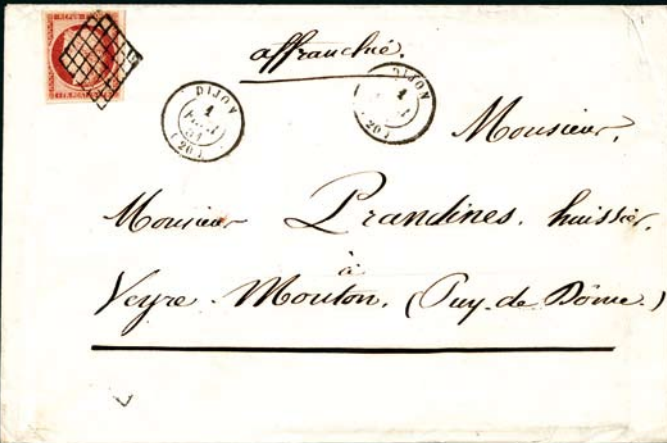 affranchie.
DIJON
1
51
(20)
DIJON
1
(20)
Monsieur,
Monsieur Prandines. huissier.
à
Veyre-Mouton. (Puy-de-Dôme.)